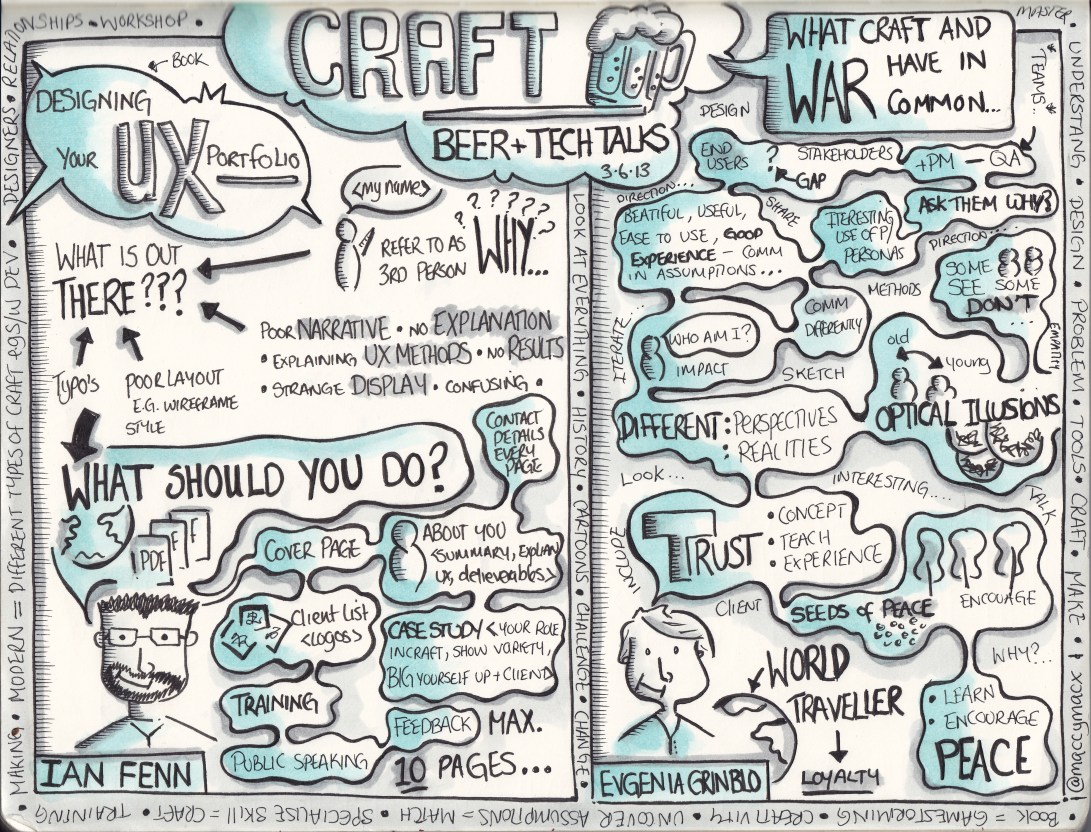 CRAFT
BEER + TECH TALKS
3-6-13
WHAT CRAFT AND
WAR HAVE IN
COMMON...
BOOK
DESIGNING
YOUR UX PORTFOLIO
<my name>
REFER TO AS
3RD PERSON
? ? ? ? ? ? ?
WHY...
WHAT IS OUT
THERE???
POOR NARRATIVE • NO EXPLANATION
• EXPLAINING UX METHODS • NO RESULTS
• STRANGE DISPLAY • CONFUSING •
TYPO'S
POOR LAYOUT
E.G. WIREFRAME
STYLE
WHAT SHOULD YOU DO?
CONTACT
DETAILS
EVERY
PAGE
PDF
F
F
COVER PAGE
ABOUT YOU
<SUMMARY, EXPLAIN
UX, deliverables>
Client List
<logos>
CASE STUDY < YOUR ROLE
IN CRAFT, SHOW VARIETY,
BIG YOURSELF UP + CLIEND
TRAINING
FEEDBACK
PUBLIC SPEAKING
MAX.
10 PAGES...
IAN FENN
DESIGN
END
USERS
?
GAP
STAKEHOLDERS
+PM — QA
*TEAMS*
MASTER
ASK THEM WHY?
DIRECTION...
BEATIFUL, USEFUL,
EASE TO USE, GOOD
EXPERIENCE – COMM
IN ASSUMPTIONS...
SHARE
ITERESTING
USE OF P/
PERSONAS
DIRECTION...
SOME
SEE SOME
DON'T
...
EMPATHY
METHODS
ITERATE...
WHO AM I?
IMPACT
COMM
DIFFERENTLY
SKETCH
old
young
OPTICAL ILLUSIONS
DIFFERENT: PERSPECTIVES
• REALITIES
LOOK...
INTERESTING....
TALK
INCLUDE
TRUST
• CONCEPT
• TEACH
• EXPERIENCE
ENCOURAGE
CLIENT
SEEDS OF PEACE
WHY?..
WORLD
TRAVELLER
LOYALTY
• LEARN
• ENCOURAGE
PEACE
EVGENIA GRINBLO
LOOK AT EVERYTHING • HISTORY • CARTOONS • CHALLENGE • CHANGE
MAKING • MODERN = DIFFERENT TYPES OF CRAFT egs/w DEV • DESIGNERS • RELATIONSHIPS • WORKSHOP •
UNDERSTANDING • DESIGN • PROBLEM • TOOLS • CRAFT • MAKE
BOOK = GAMESTORMING • CREATIVITY • UNCOVER ASSUMPTIONS = MATCH • SPECIALISE SKILL = CRAFT • TRAINING